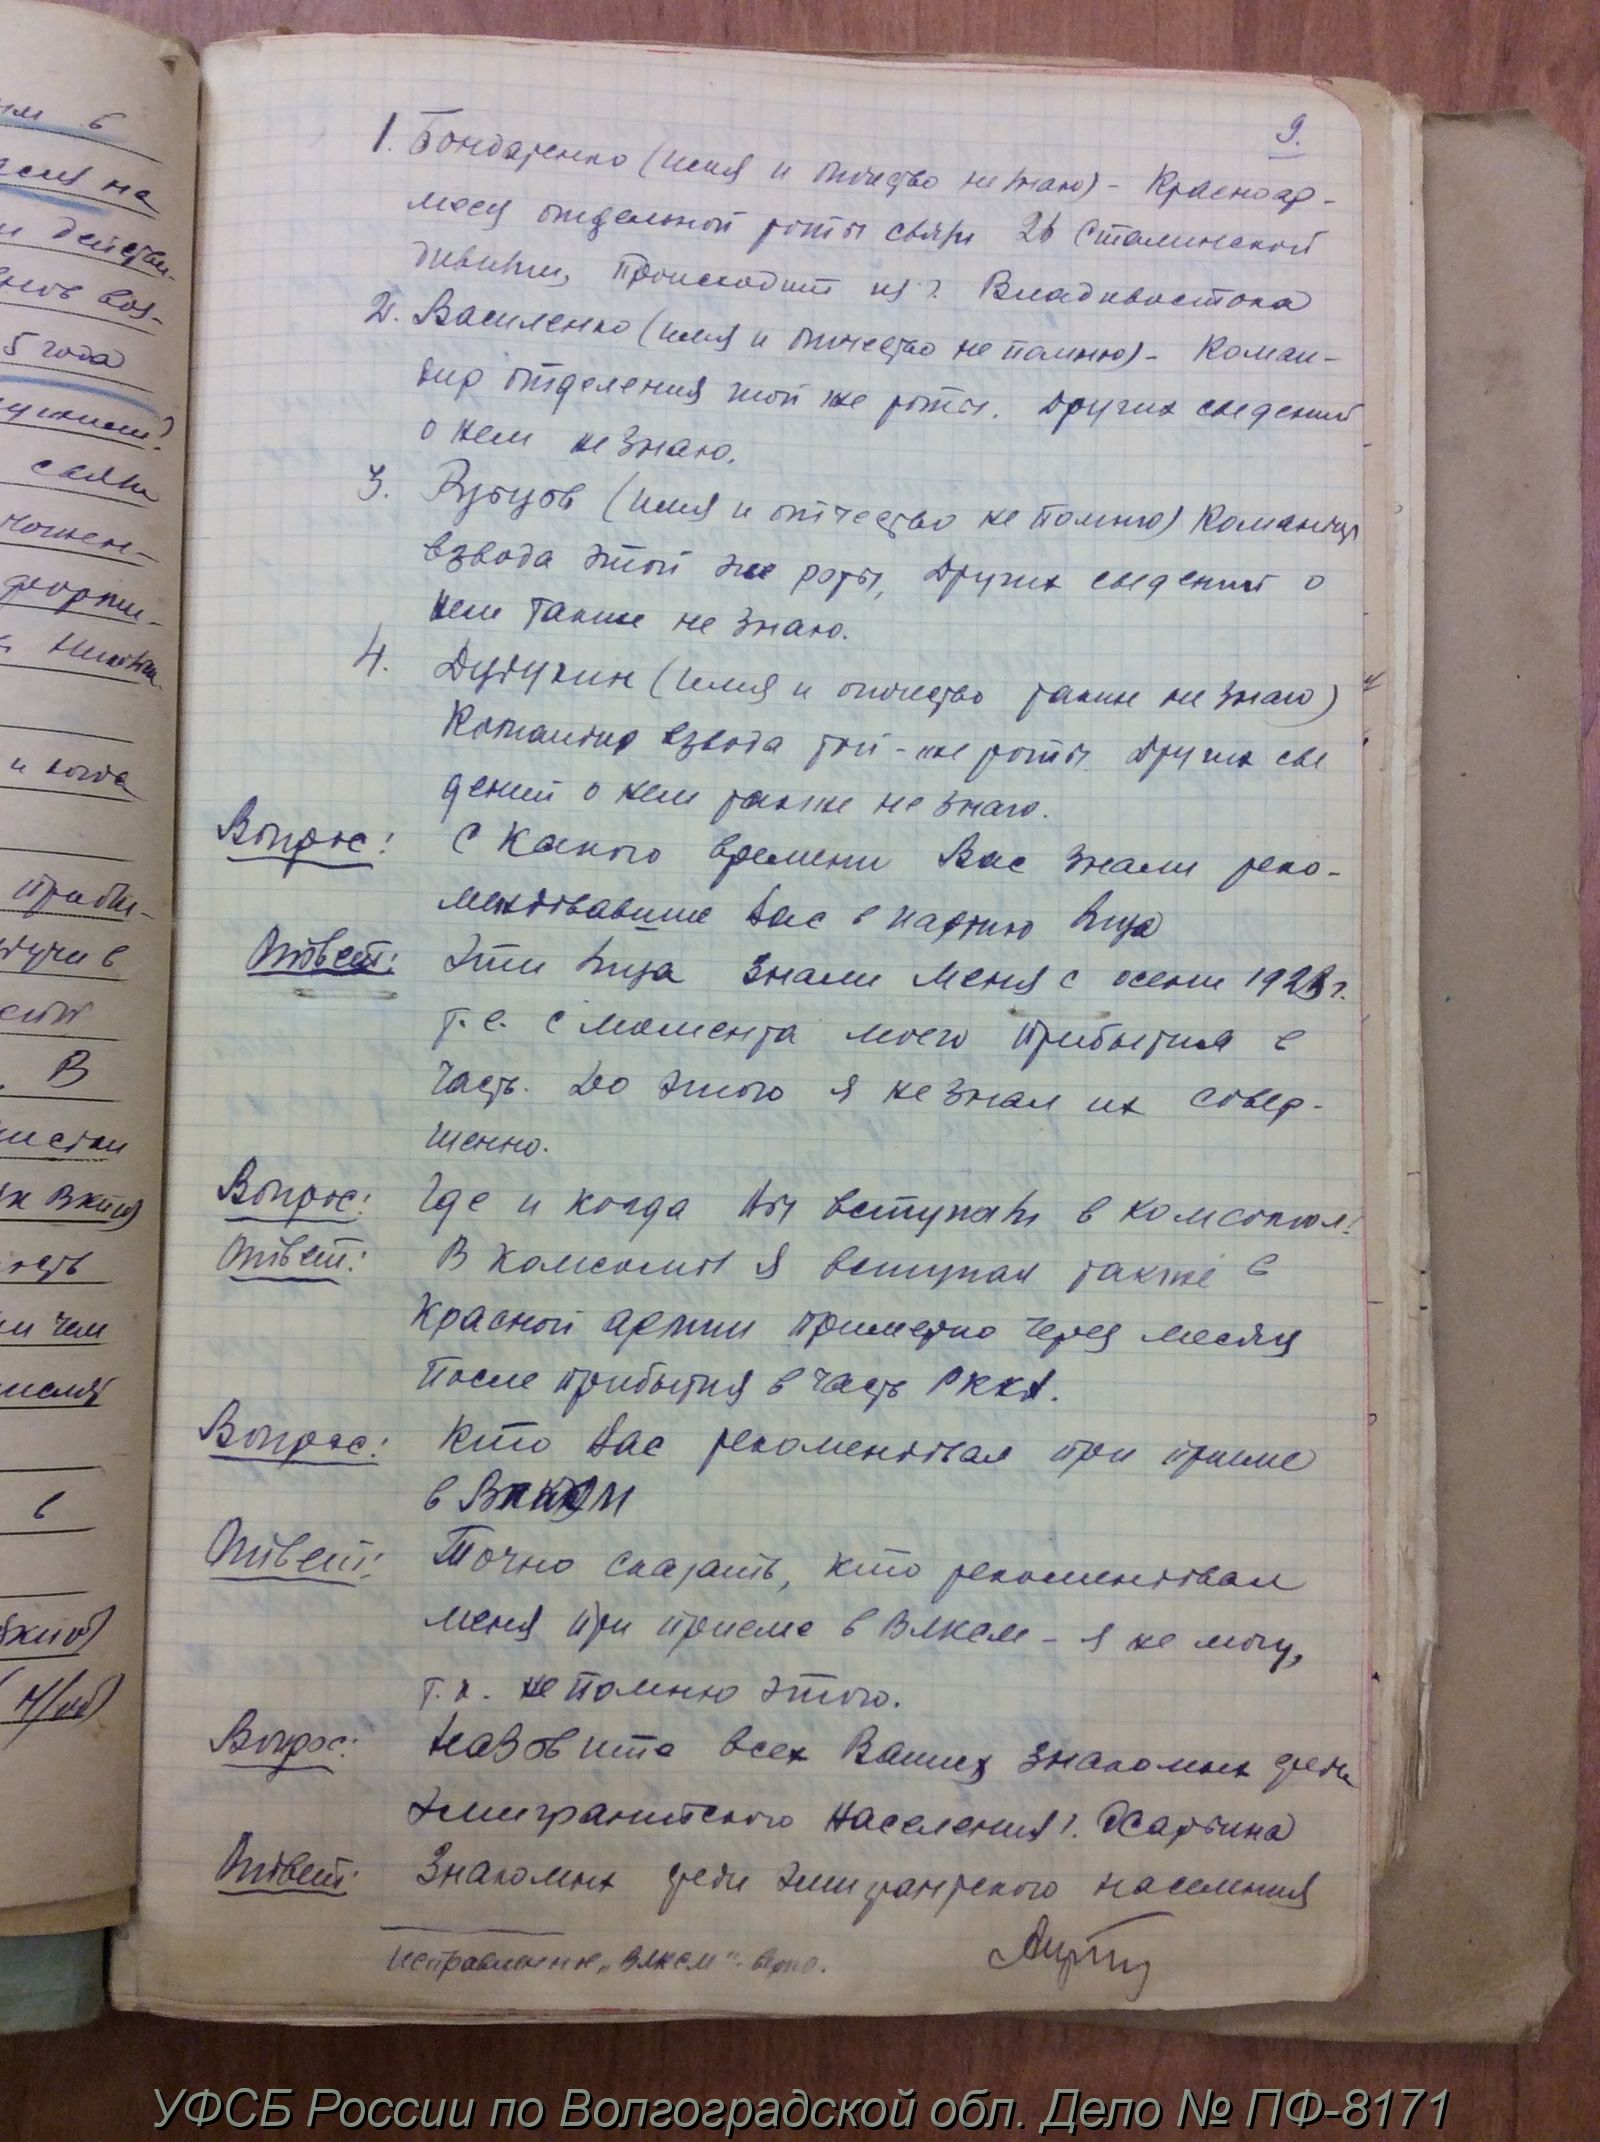 9.
1. Бондаренко (имя и отчество не знаю) - Красноар-
меец отдельной роты связи 26 Сталинской
дивизии, происходит из г. Владивостока
2. Василенко (имя и отчество не помню) - Коман-
дир отделения той же роты. Других сведений
о нем не знаю.
3. (имя и отчество не помню) Командир
взвода этой же роты, других сведений о
нем также не знаю.
4. (имя и отчество также не знаю)
Командир взвода той-же роты. Других све
дений о нем также не знаю.
Вопрос: С какого времени Вас знали реко-
мендовавшие Вас в партию лица
Ответ: Эти лица знали меня с осени г.
т.е. с момента моего прибытия в
часть. До этого я не знал их совер-
шенно.
Вопрос: Где и когда Вы вступали в комсомол?
Ответ: В комсомол я вступал также в
Красной армии примерно через месяц
после прибытия в часть РККА.
Вопрос: Кто Вас рекомендовал при приеме
в
Ответ: Точно сказать, кто рекомендовал
меня при приеме в ВЛКСМ - я не могу,
т.к. не помню этого.
Вопрос: Назовите всех Ваших знакомых среди
эмигрантского населения г. Харбина
Ответ: Знакомых среди эмигрантского населения
Исправленное „ВЛКСМ" верно.
6
на
5 года
и когда
В
в
УФСБ России по Волгоградской обл. Дело № ПФ-8171